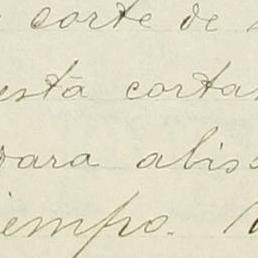 corte de
está corta
para abis
iempo.